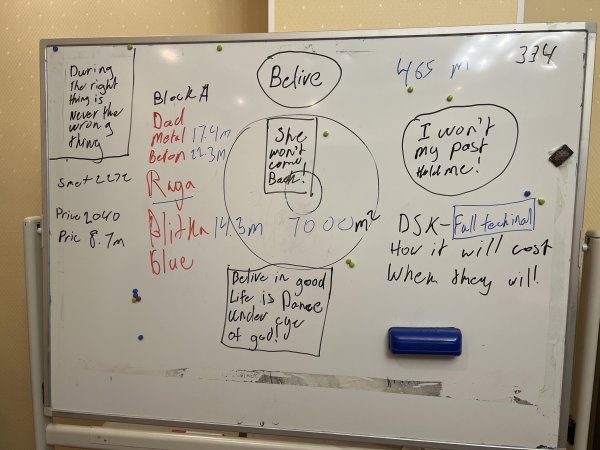 During
The right
thing is
Never the
wrong
thing
Smet 2272
Price 2040
Pric 8.7m
Block A
Dad
Metal 17.4m
Beton 22.3m
Raga
Blitka 14.3m
blue
Belive
She
won't
come
Back!
7000 m²
Belive in good
Life is Danae
under eye
of god!
465 m
334
I won't
my past
Hold me!
DSK- Full techinal
How it will cost
When they will!